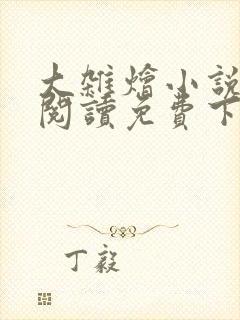 大雜燴小說
閱讀免費下
丁毅